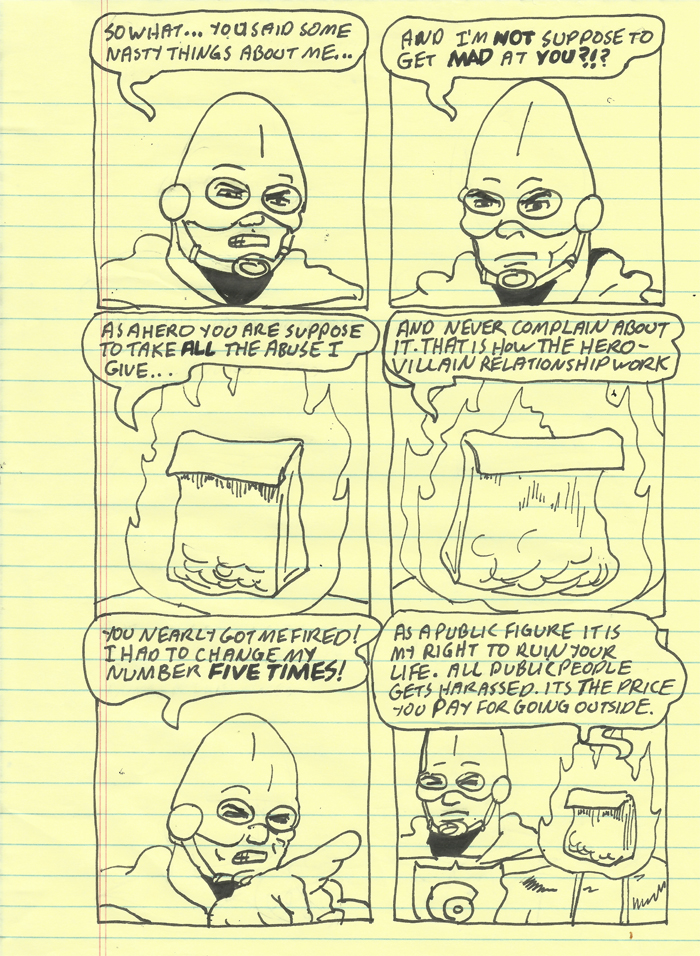 SO WHAT... YOU SAID SOME
NASTY THINGS ABOUT ME...
AND I'M NOT SUPPOSE TO
GET MAD AT YOU?!?
AS A HERO YOU ARE SUPPOSE
TO TAKE ALL THE ABUSE I
GIVE...
AND NEVER COMPLAIN ABOUT
IT. THAT IS HOW THE HERO-
VILLAIN RELATIONSHIP WORK
YOU NEARLY GOT ME FIRED!
I HAD TO CHANGE MY
NUMBER FIVE TIMES!
AS A PUBLIC FIGURE IT IS
MY RIGHT TO RUIN YOUR
LIFE. ALL PUBLIC PEOPLE
GETS HARASSED. ITS THE PRICE
YOU PAY FOR GOING OUTSIDE.